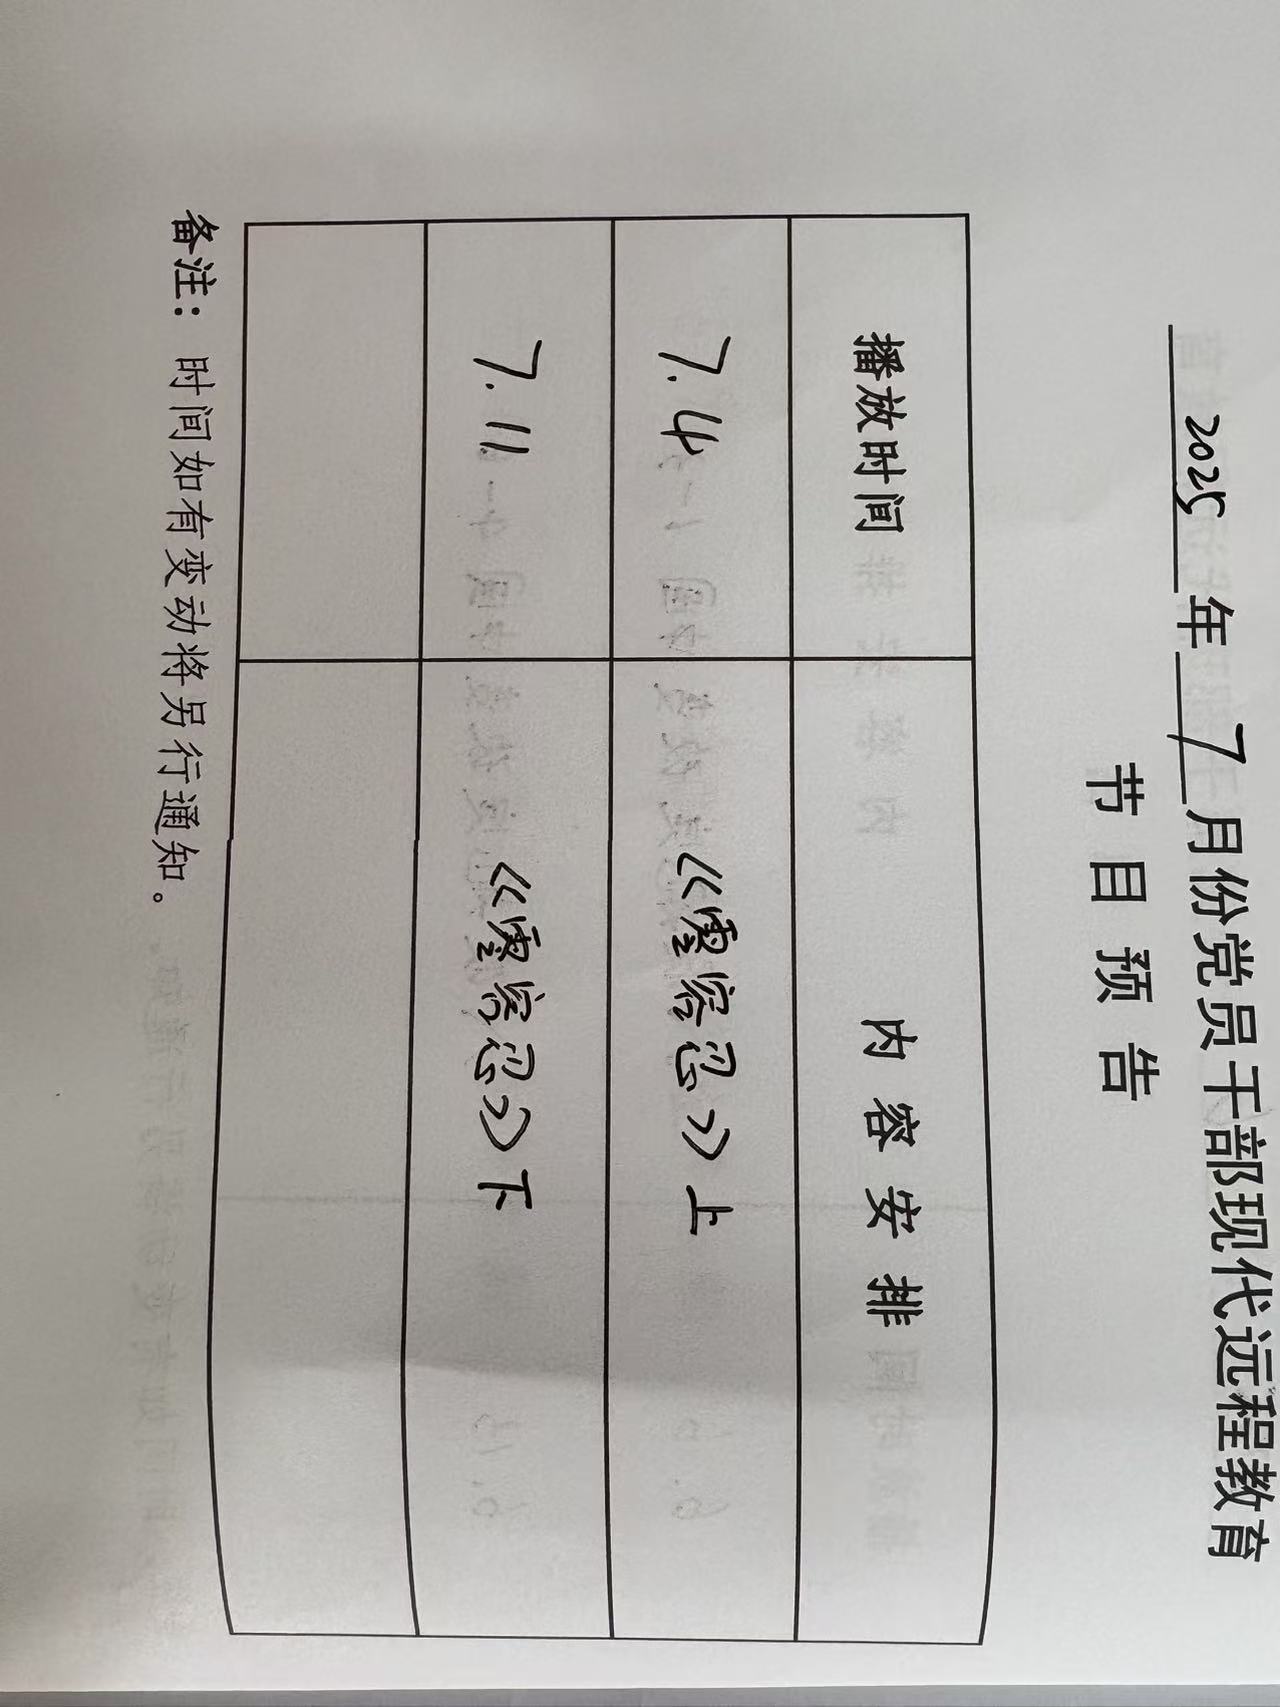 2025年7月份党员干部现代远程教育
节目预告
播放时间 内容安排
7.4 《零容忍》上
7.11 《零容忍》下
备注：时间如有变动将另行通知。